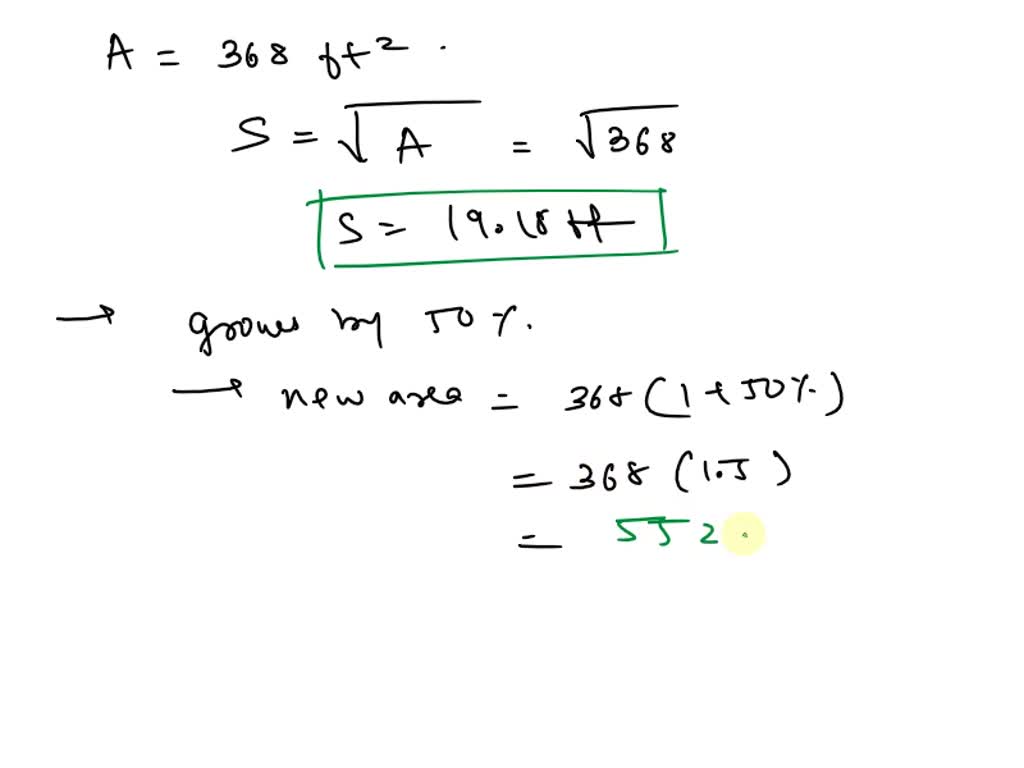 A = 368 ft²
S = √A = √368
S = 19.18 ft
→ grows by 50%.
→ new area = 368 (1 + 50%)
= 368 (1.5)
= 552